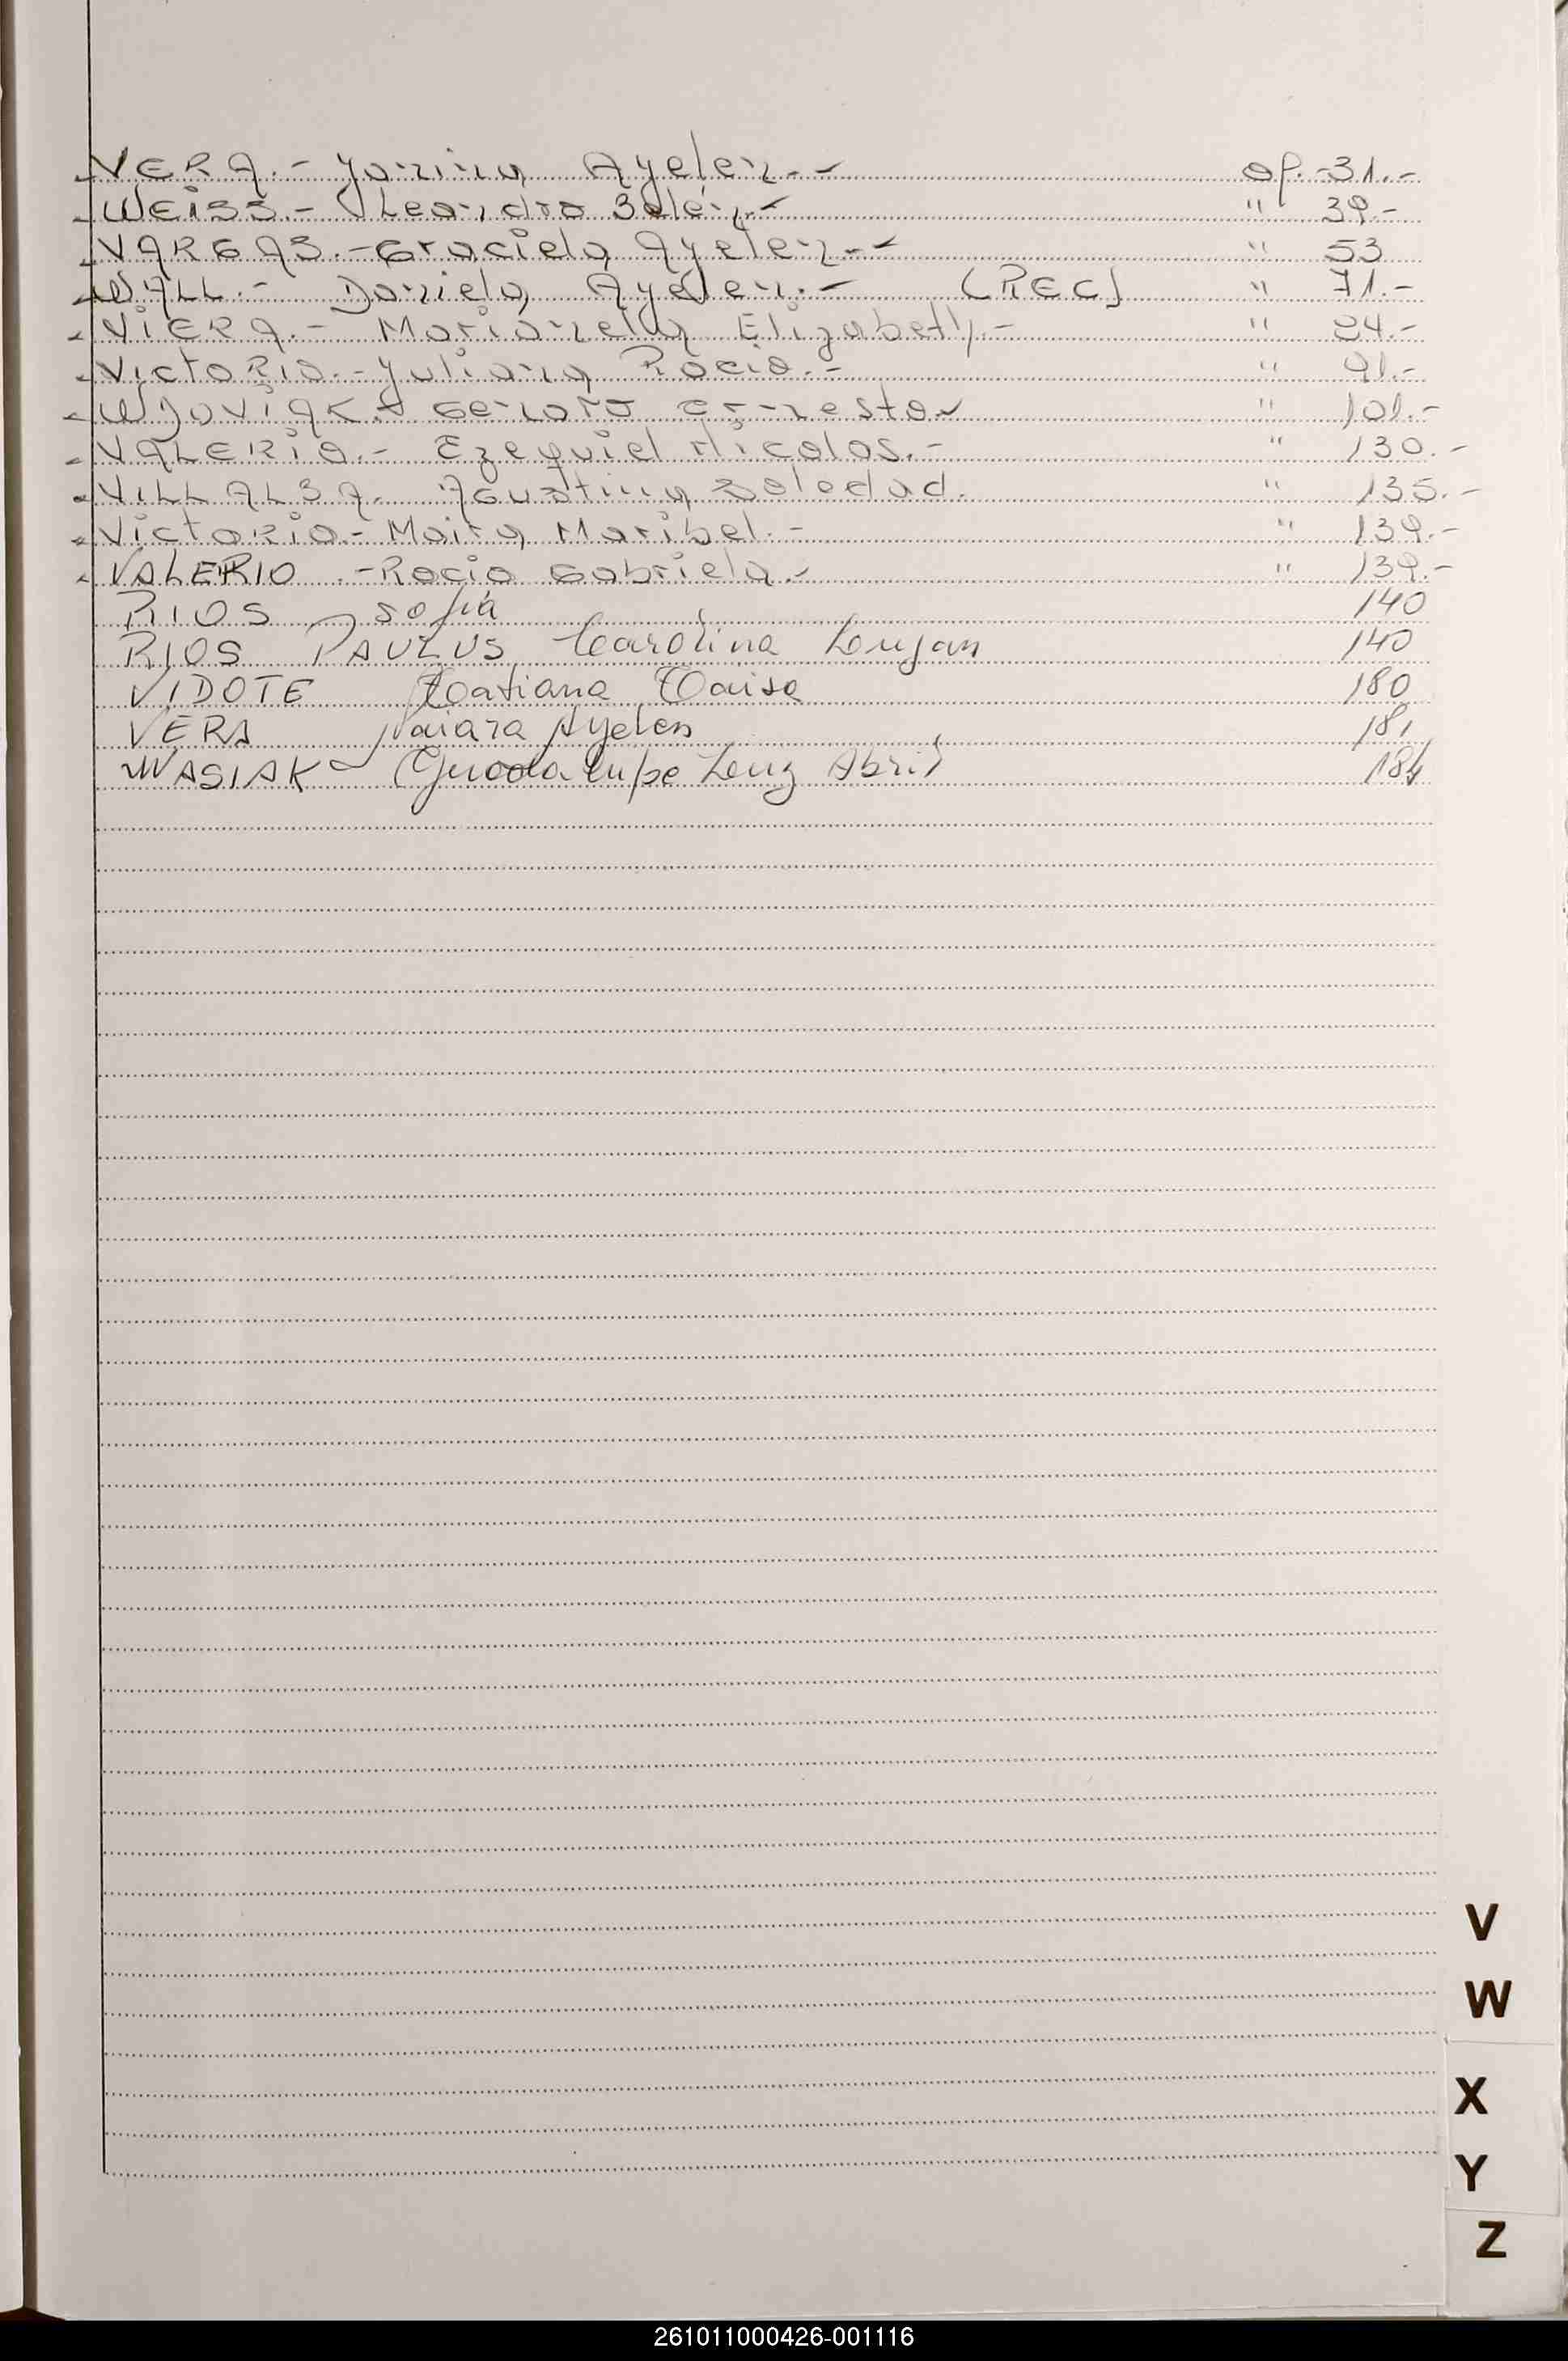 VERA.- Yanina Ayelen.- af.-31.-
WEiSS.- Leandro Belén.- " 39.-
VARGAS.-Graciela Ayelen.- " 53
WALL.- Daniela Ayelen.- (REC) " 71.-
ViERA.- Marianela Elizabeth.- " 84.-
VictoRio.-Yuliana Rocio.- " 91.-
WJOViAK.- Genaro Ernesto " 101.-
VALERiO.- Ezequiel Nicolas.- " 130.-
ViLLALBA. Agustina Soledad. " 135.-
VictoRio.- Maira Maribel.- " 139.-
VALERIO .-Rocio Gabriela.- " 139.-
RIOS Sofia 140
RIOS PAULUS Carolina Lujan 140
VIDOTE Tatiana Taisa 180
VERA Naiara Ayelen 181
WASIAK Guadalupe Luz Abril 184
V
W
X
Y
Z
261011000426-001116